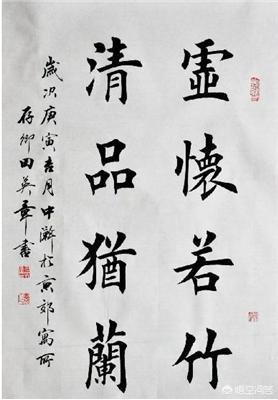 虛懷若竹
清品猶蘭
歲次庚寅吉月中澣於京郊寓所
存卿田英章書
悟空问答